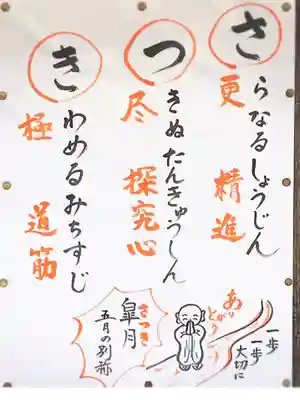 さらなるしょうじん
更 精進
つきぬたんきゅうしん
尽 探究心
きわめるみちすじ
極 道筋
さつき
皐月
五月の別称
ありがとう
一歩
一歩
大切に